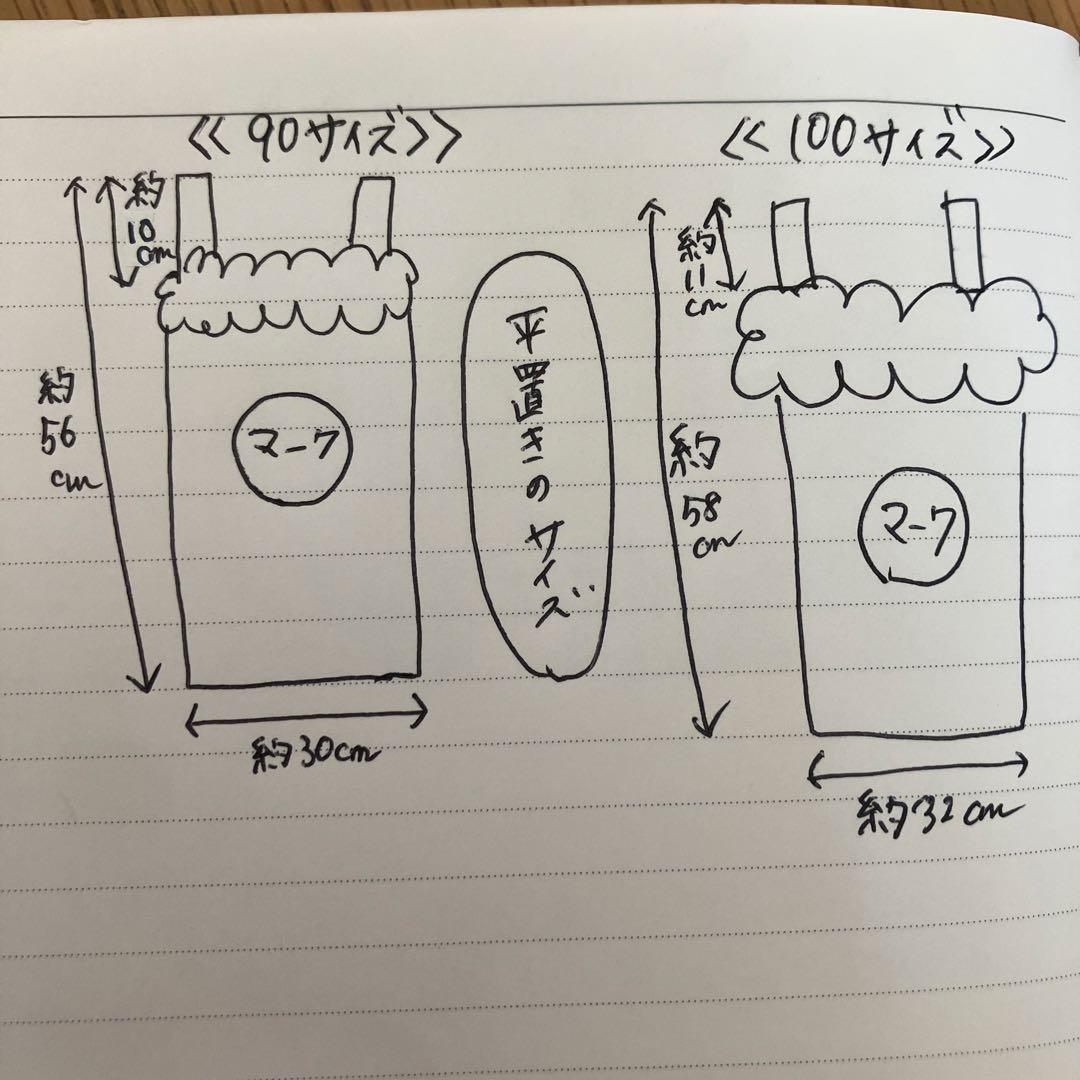 <<90サイズ>>
約
10
cm
約
56
cm
マーク
約30cm
平置きのサイズ
<<100サイズ>>
約
11
cm
約
58
cm
マーク
約32cm